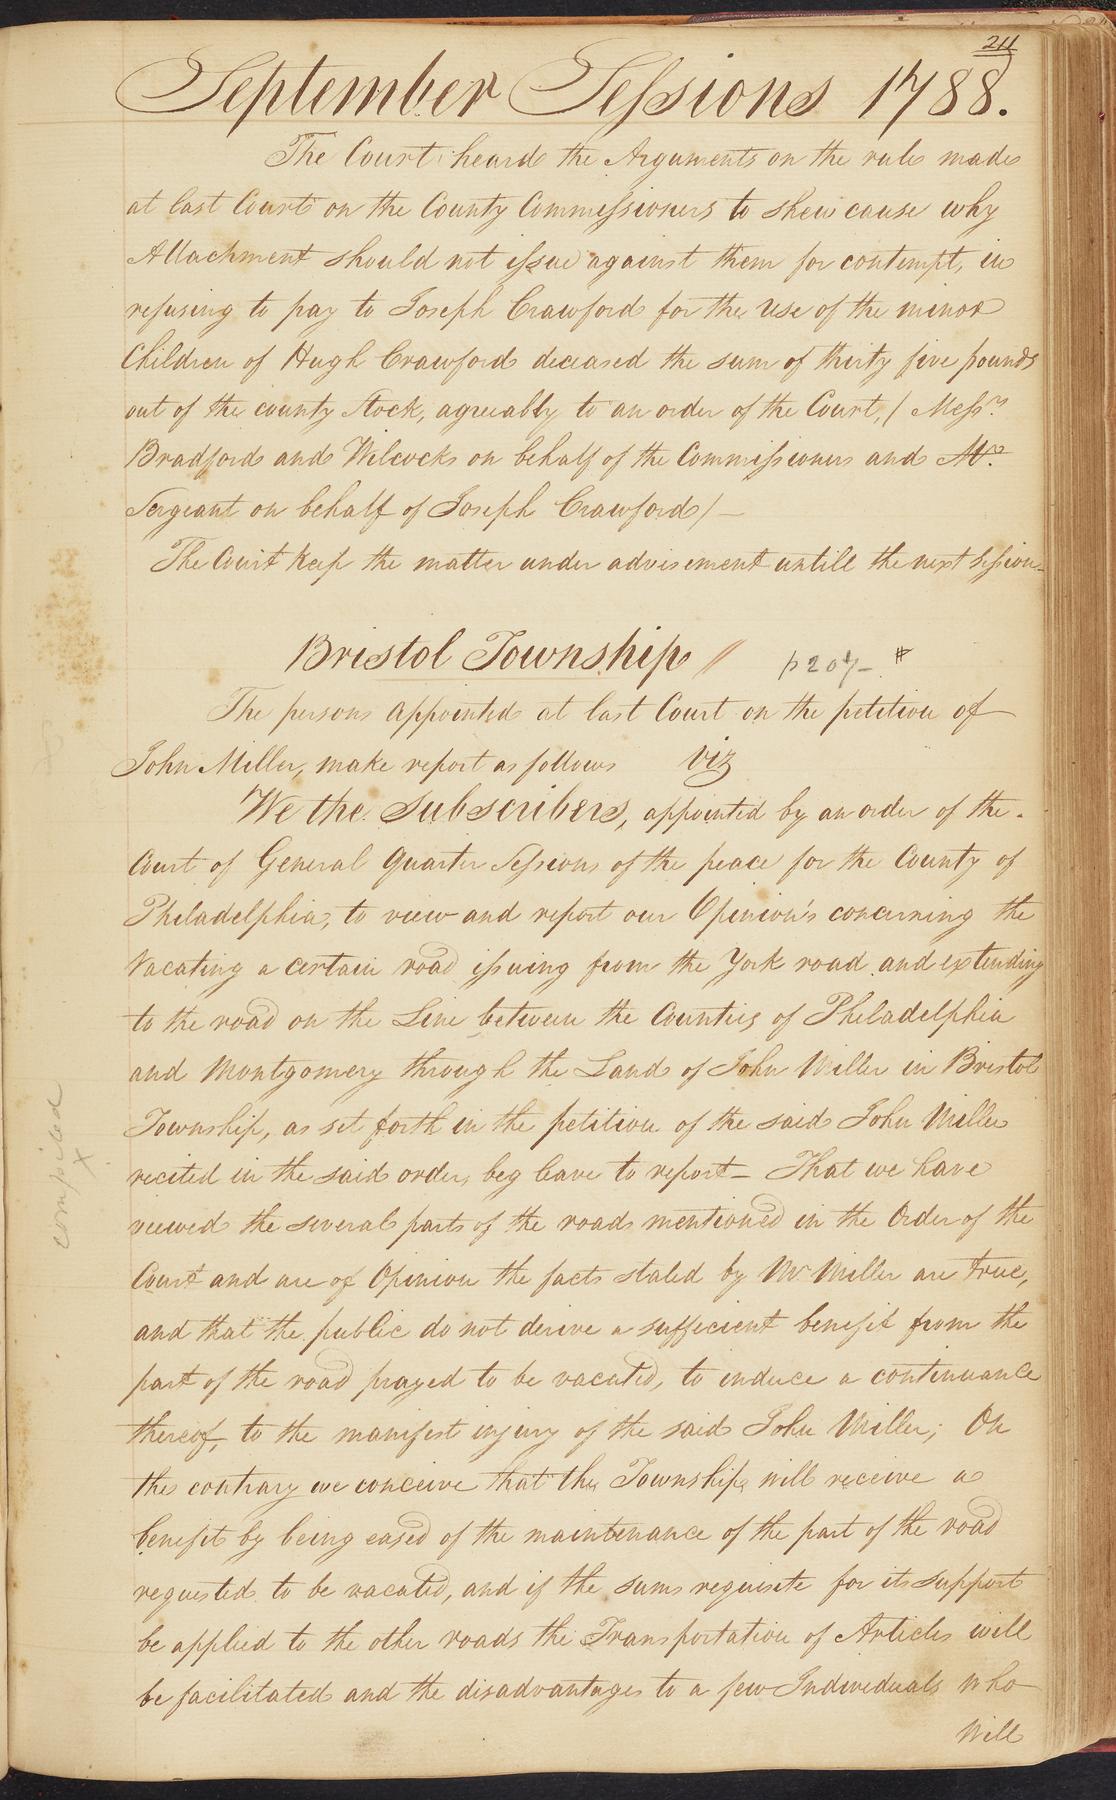 211
September Sessions 1788.
The Court heard the Arguments on the rule made
at last Court on the County Commissioners to shew cause why
Attachment should not issue against them for contempt, in
refusing to pay to Joseph Crawford for the use of the minor
Children of Hugh Crawford deceased the sum of thirty five pounds
out of the county Stock, agreeably to an order of the Court, / Messrs
Bradford and Wilcocks on behalf of the Commissioners and Mr.
Sergeant on behalf of Joseph Crawford / —
The Court keep the matter under advisement untill the next session—
Bristol Township // p 207— #
The persons appointed at last Court on the petition of
John Miller, make report as follows viz
We the Subscribers, appointed by an order of the
Court of General Quarter Sessions of the peace for the County of
Philadelphia, to view and report our Opinion's concerning the
Vacating a certain road issuing from the York road and extending
to the road on the Line between the Counties of Philadelphia
and Montgomery through the Land of John Miller in Bristol
Township, as set forth in the petition of the said John Miller
recited in the said order, beg leave to report — That we have
viewed the several parts of the roads mentioned in the Order of the
Court and are of Opinion the facts stated by Mr Miller are true,
and that the public do not derive a sufficient benefit from the
part of the road prayed to be vacated, to induce a continuance
thereof, to the manifest injury of the said John Miller; On
the contrary we conceive that the Township will receive a
benefit by being eased of the maintenance of the part of the road
requested to be vacated, and if the sums requisite for its support
be applied to the other roads the Transportation of Articles will
be facilitated and the disadvantages to a few Individuals who
Will
compiled
x